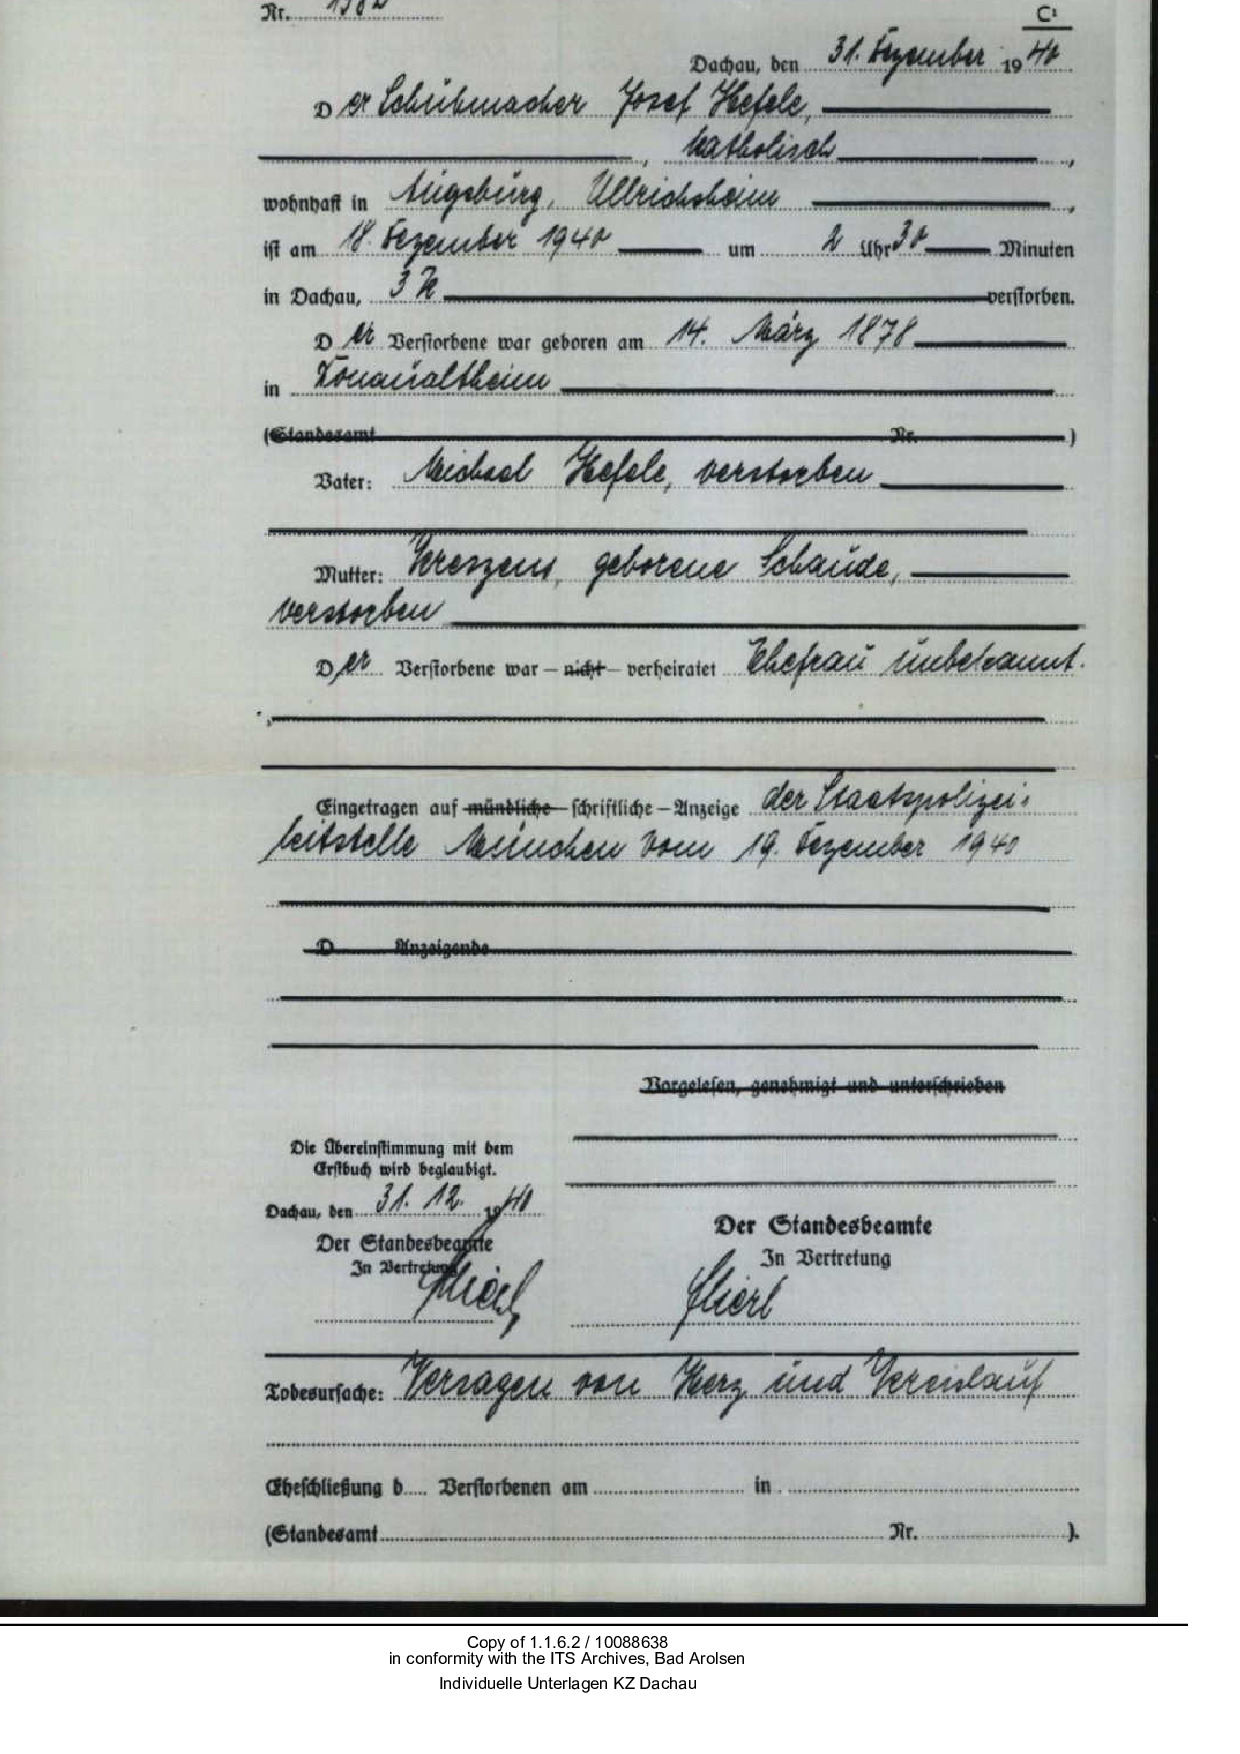 Nr. 1382
C¹
Dachau, den 31. Dezember 1940
Der Schuhmacher Josef Hefele,
, katholisch,
wohnhaft in Augsburg, Ullrichsheim,
ist am 18. Dezember 1940 um 2 Uhr 30 Minuten
in Dachau, 3 K verstorben.
Der Verstorbene war geboren am 14. März 1878
in Donaualtheim
(Standesamt Nr. )
Vater: Michael Hefele, verstorben
Mutter: Kreszens, geborene Schaude,
verstorben
Der Verstorbene war – nicht – verheiratet Ehefrau unbekannt.
Eingetragen auf mündliche – schriftliche – Anzeige der Staatspolizei-
leitstelle München vom 19. Dezember 1940
D Anzeigende
Vorgelesen, genehmigt und unterschrieben
Die Übereinstimmung mit dem
Erstbuch wird beglaubigt.
Dachau, den 31. 12. 1940
Der Standesbeamte
In Vertretung
Der Standesbeamte
In Vertretung
Todesursache: Versagen von Herz und Kreislauf
Eheschließung d..... Verstorbenen am in
(Standesamt Nr. ).
Copy of 1.1.6.2 / 10088638
in conformity with the ITS Archives, Bad Arolsen
Individuelle Unterlagen KZ Dachau